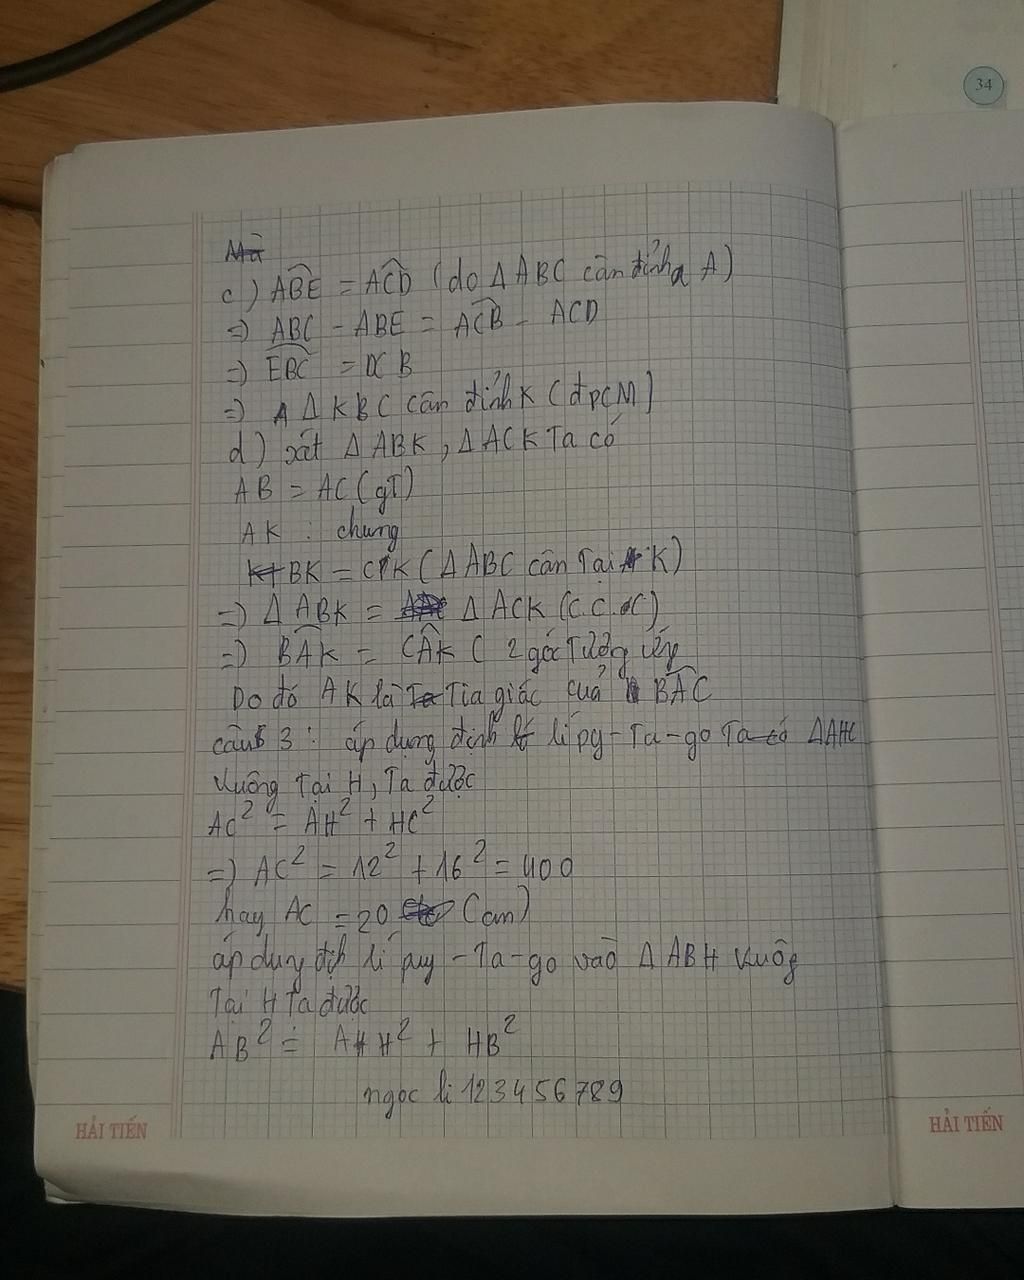 34
Mà
c) ABE = ACD (do Δ ABC cân đỉnh A)
=) ABC - ABE = ACB - ACD
=) EBC = DCB
=) Δ KBC cân đỉnh K (đpCM)
d) xét Δ ABK, Δ ACK Ta có
AB = AC (gT)
AK : chung
BK = CK (Δ ABC cân Tại K)
=) Δ ABK = Δ ACK (C.C.C)
=) BAK = CAK ( 2 góc Tương ứng
Do đó AK là Tia giác của BAC
câu 3 : áp dụng định lí py-Ta-go Ta có ΔAHC
Vuông Tại H, Ta được
AC² = AH² + HC²
=) AC² = 12² + 16² = 400
hay AC = 20 (cm)
áp dung địh lí puy-Ta-go vào Δ ABH Vuôg
Tại H Ta được
AB² = AH² + HB²
ngoc li 123456789
HẢI TIẾN
HẢI TIẾN